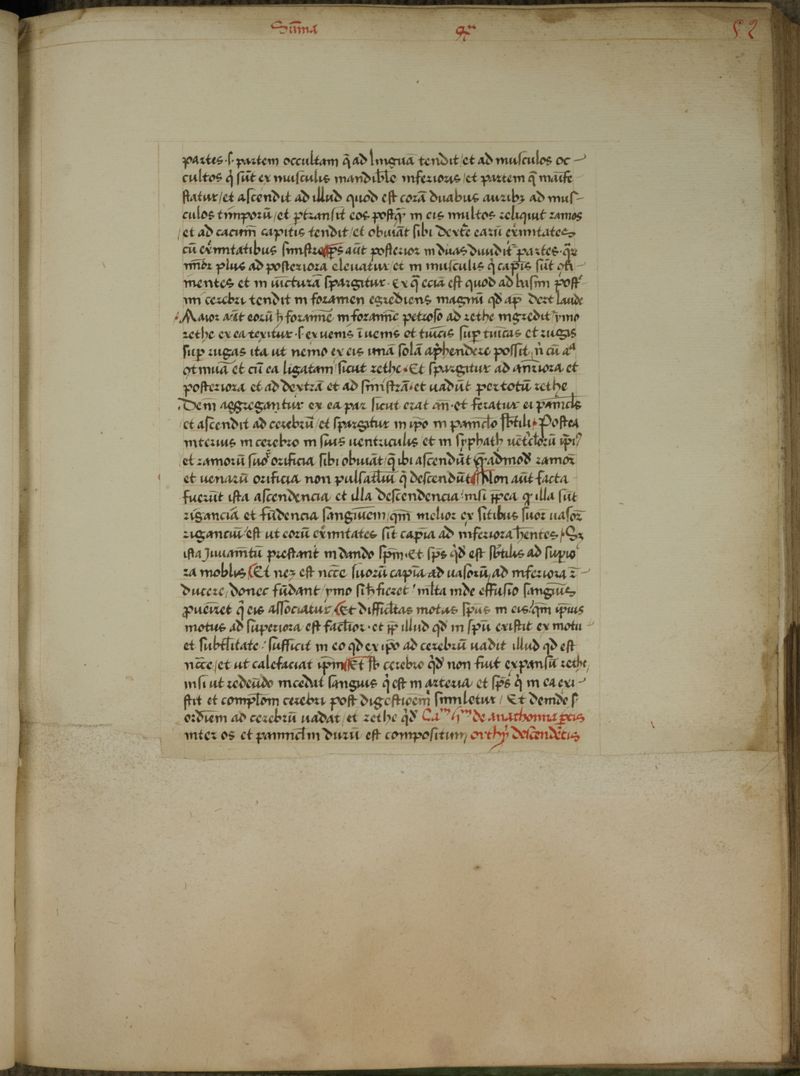 Sūma 52
partes .s. partem occultam q̄ ad linguā tendit / et ad musculos oc-
cultos q̄ sūt ex musculis mandible inferioris / et partem q̄ manife
statur / et ascendit ad illud quod est corā duabus auribȝ ad mus-
culos timporū / et ptransit eos postq̄ in eis multos reliquit ramos
/ et ad cacumē capitis tendit / et obuiāt sibi dextre earū exmitates
cū exmitatibus sinistre p̄s aūt posterior in duas diuidit partes
plus ad posteriora eleuatur et in musculis q̄ capis sūt
mentes et in iūcturā spargitur . Ex q̄ eciā est quod ad basim post
im cerebri tendit in foramen egrediens magnū qd̄ ap̄ laude
Maior aūt eorū foramine petroso ad rethe ingredit ymo
rethe ex ea texitur .s. ex uenis ī uenis et tunicis sup̄ tunicas et rugas
sup̄ rugas ita ut nemo ex eis unā solā aphendere possit
et cū ea ligatam sicut rethe . Et spargitur ad anteriora et
posteriora et ad dextrā et ad sinistrā . et uadūt per totū rethe
Dein aggregantur ex ea par sicut erat an̄ . et feratur ei panniclꝰ
et ascendit ad cerebrū et spargitur in ip̄o in panniclo sbtili . Postea
interius in cerebro in suis uentriculis et in syphath
et ramorū suoꝝ orificia sibi obuiāt q̄ ibi ascendūt ramoꝝ
et uenarū orificia non pulsatiliū q̄ descendūt Non aūt facta
fuerūt ista ascendencia et illa descendencia / nisi ꝓpea q illa sūt
rigancia et fūdencia sanguinem / qm̄ melior ex sitibus suoꝝ uasoꝝ
riganciū / est ut eorū exmitates sīt capia ad inferiora hentes
ista Juuamtū prestant in dando sp̄m . Et sp̄s qd̄ est sbtilis ad supio
ra mobilis Et est ncc̄e suorū capia ad uasorū ad inferiora
ducere / donec fūdant / ymo si h̄ fieret multa inde effusio sanguis
ꝓueniret q̄ eis associatur Et difficultas motus spūs in eis / qm̄ ipius
motus ad superiora est facilior . et illud qd̄ in spū existit ex motu
et subtilitate sufficit in eo qd̄ ex ip̄o ad cerebrū uadit illud qd̄ est
ncc̄e / et ut calefaciat ipm̄ Et sb cerebro qd̄ non fiut expansū rethe
nisi ut redeūdo incedat sanguis q̄ est in arteria et sp̄s q̄ in ea exi-
stit et complom cerebri post digestioem similetur / Et deinde
ordinem ad cerebrū uadat / et rethe qd̄ Ca de anathomia ꝑtis
inter os et panniclm durū est compositum / orthy descēdētis